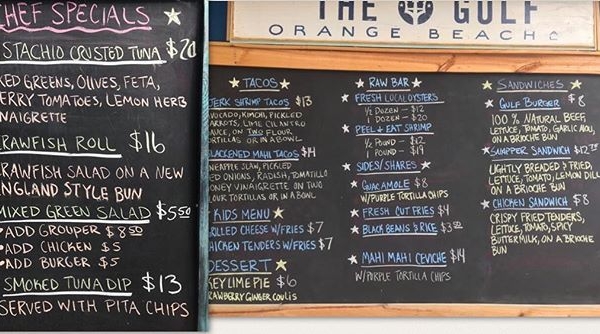 CHEF SPECIALS
STACHIO CRUSTED TUNA $20
XED GREENS, OLIVES, FETA,
ERRY TOMATOES, LEMON HERB
NAIGRETTE
RAWFISH ROLL $16
RAWFISH SALAD ON A NEW
ENGLAND STYLE BUN
MIXED GREEN SALAD $5.50
• ADD GROUPER $8.50
• ADD CHICKEN $5
• ADD BURGER $5
SMOKED TUNA DIP $13
SERVED WITH PITA CHIPS
THE GULF
ORANGE BEACH
TACOS
JERK SHRIMP TACOS $13
AVOCADO, KIMCHI, PICKLED
CARROTS, LIME CILANTRO
SAUCE, ON TWO FLOUR
TORTILLAS OR IN A BOWL
BLACKENED MAHI TACOS $14
PINEAPPLE SLAW, PICKLED
RED ONIONS, RADISH, TOMATILLO
HONEY VINAIGRETTE ON TWO
FLOUR TORTILLAS OR IN A BOWL
KIDS MENU
GRILLED CHEESE W/FRIES $7
CHICKEN TENDERS W/FRIES $7
DESSERT
KEY LIME PIE $6
STRAWBERRY GINGER COULIS
RAW BAR
FRESH LOCAL OYSTERS
½ DOZEN - $12
1 DOZEN - $20
PEEL & EAT SHRIMP
½ POUND - $12
1 POUND - $19
SIDES/SHARES
GUACAMOLE $8
W/PURPLE TORTILLA CHIPS
FRESH CUT FRIES $4
BLACK BEANS & RICE $3.50
MAHI MAHI CEVICHE $14
W/PURPLE TORTILLA CHIPS
SANDWICHES
GULF BURGER $8
100% NATURAL BEEF,
LETTUCE, TOMATO, GARLIC AIOLI,
ON A BRIOCHE BUN
SNAPPER SANDWICH $12.75
LIGHTLY BREADED & FRIED,
LETTUCE, TOMATO, LEMON DILL
ON A BRIOCHE BUN
CHICKEN SANDWICH $8
CRISPY FRIED TENDERS,
LETTUCE, TOMATO, SPICY
BUTTERMILK, ON A BRIOCHE
BUN